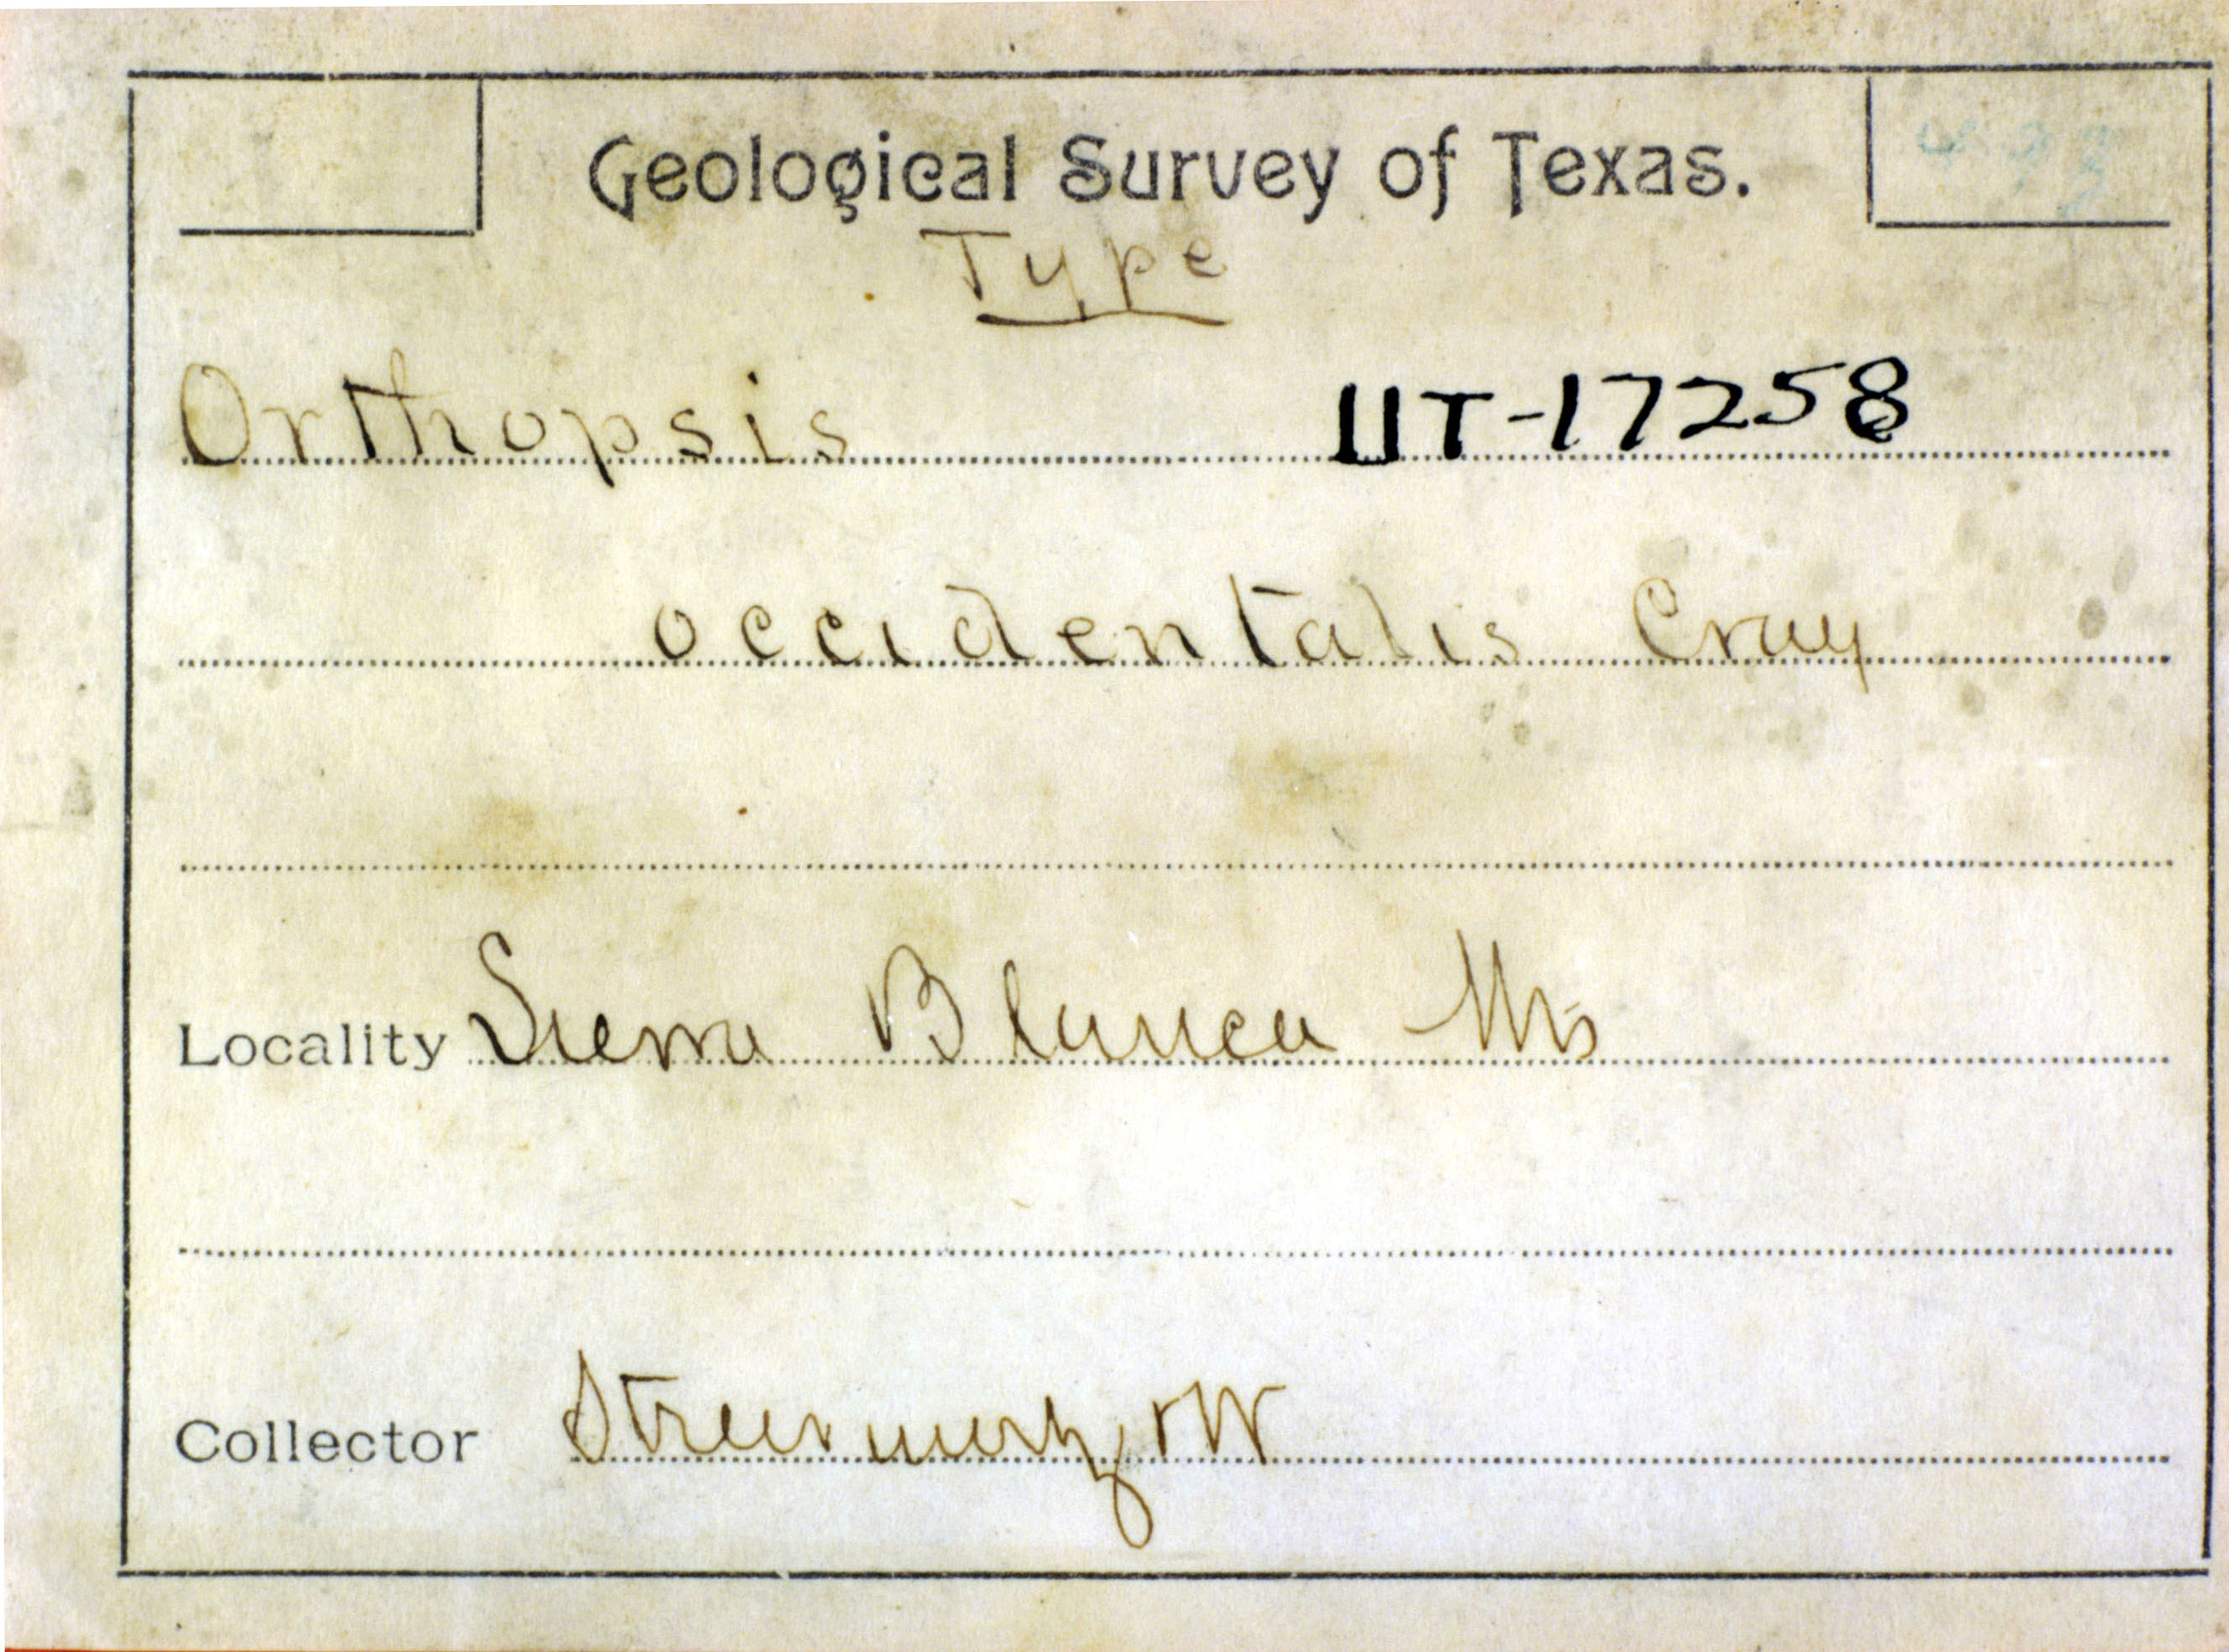 Geological Survey of Texas.
Type
Orthopsis UT-17258
occidentalis Cray
Locality Sierra Blanca Mts
Collector